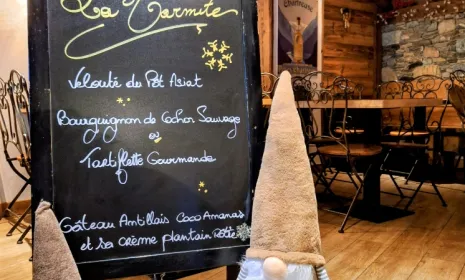 La Marmite
Velouté du Pôt Asiat
Bourguignon de Cochon Sauvage
ou
Tartiflette Gourmande
Gâteau Antillais Coco Ananas
et sa crème plantain
Chartreuse